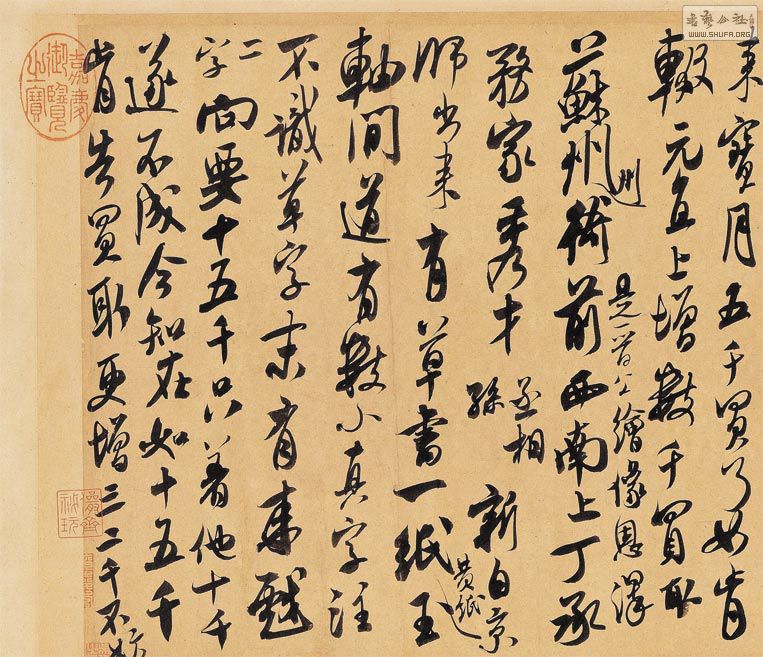 書藝公社
WWW.SHUFA.ORG
來寶月五千買了如肯
輟元直上增數千買取
蘇州州衙前西南上丁承
是晉公繪像恩澤
務家秀才丞相孫新自京
師出來有草書一紙黃紙
軸間道有數小真字注
不識草字末有來戲
二字向要十五千只著他十千
遂不成今知在如十五千
肯告買取更增三二千不妨
嘉慶御覽之寶